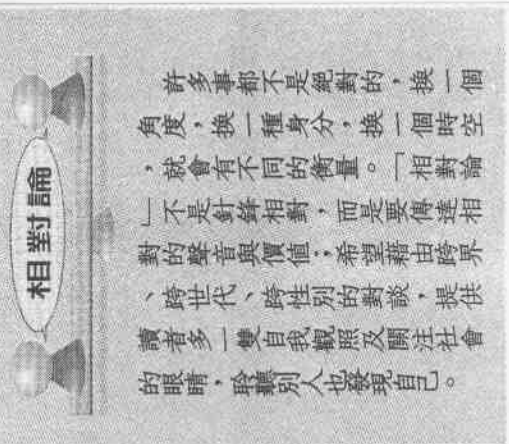 相對論
許多事都不是絕對的，換一個
角度，換一種身分，換一個時空
，就會有不同的衡量。「相對論
」不是針鋒相對，而是要傳達相
對的聲音與價值；希望藉由跨界
、跨世代、跨性別的對談，提供
讀者多一雙自我觀照及關注社會
的眼睛，聆聽別人也發現自己。